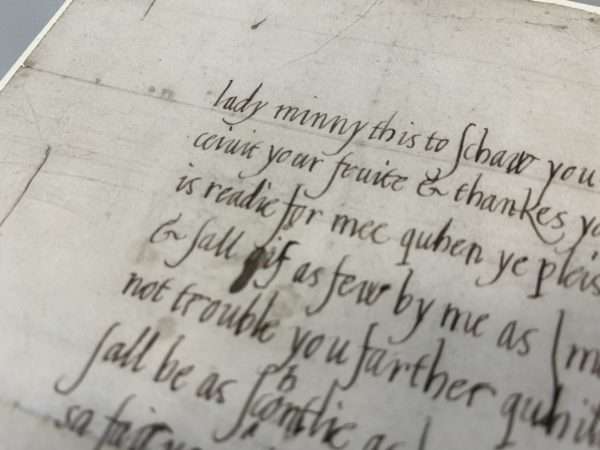 lady minny this to ſchaw you
ceiuit your fruite & thankes yo
is readie for mee quhen ye pleis
& ſall gif as few by me as I ma
not trouble you farther quhil
ſall be as ſchortlie as I
sa fair